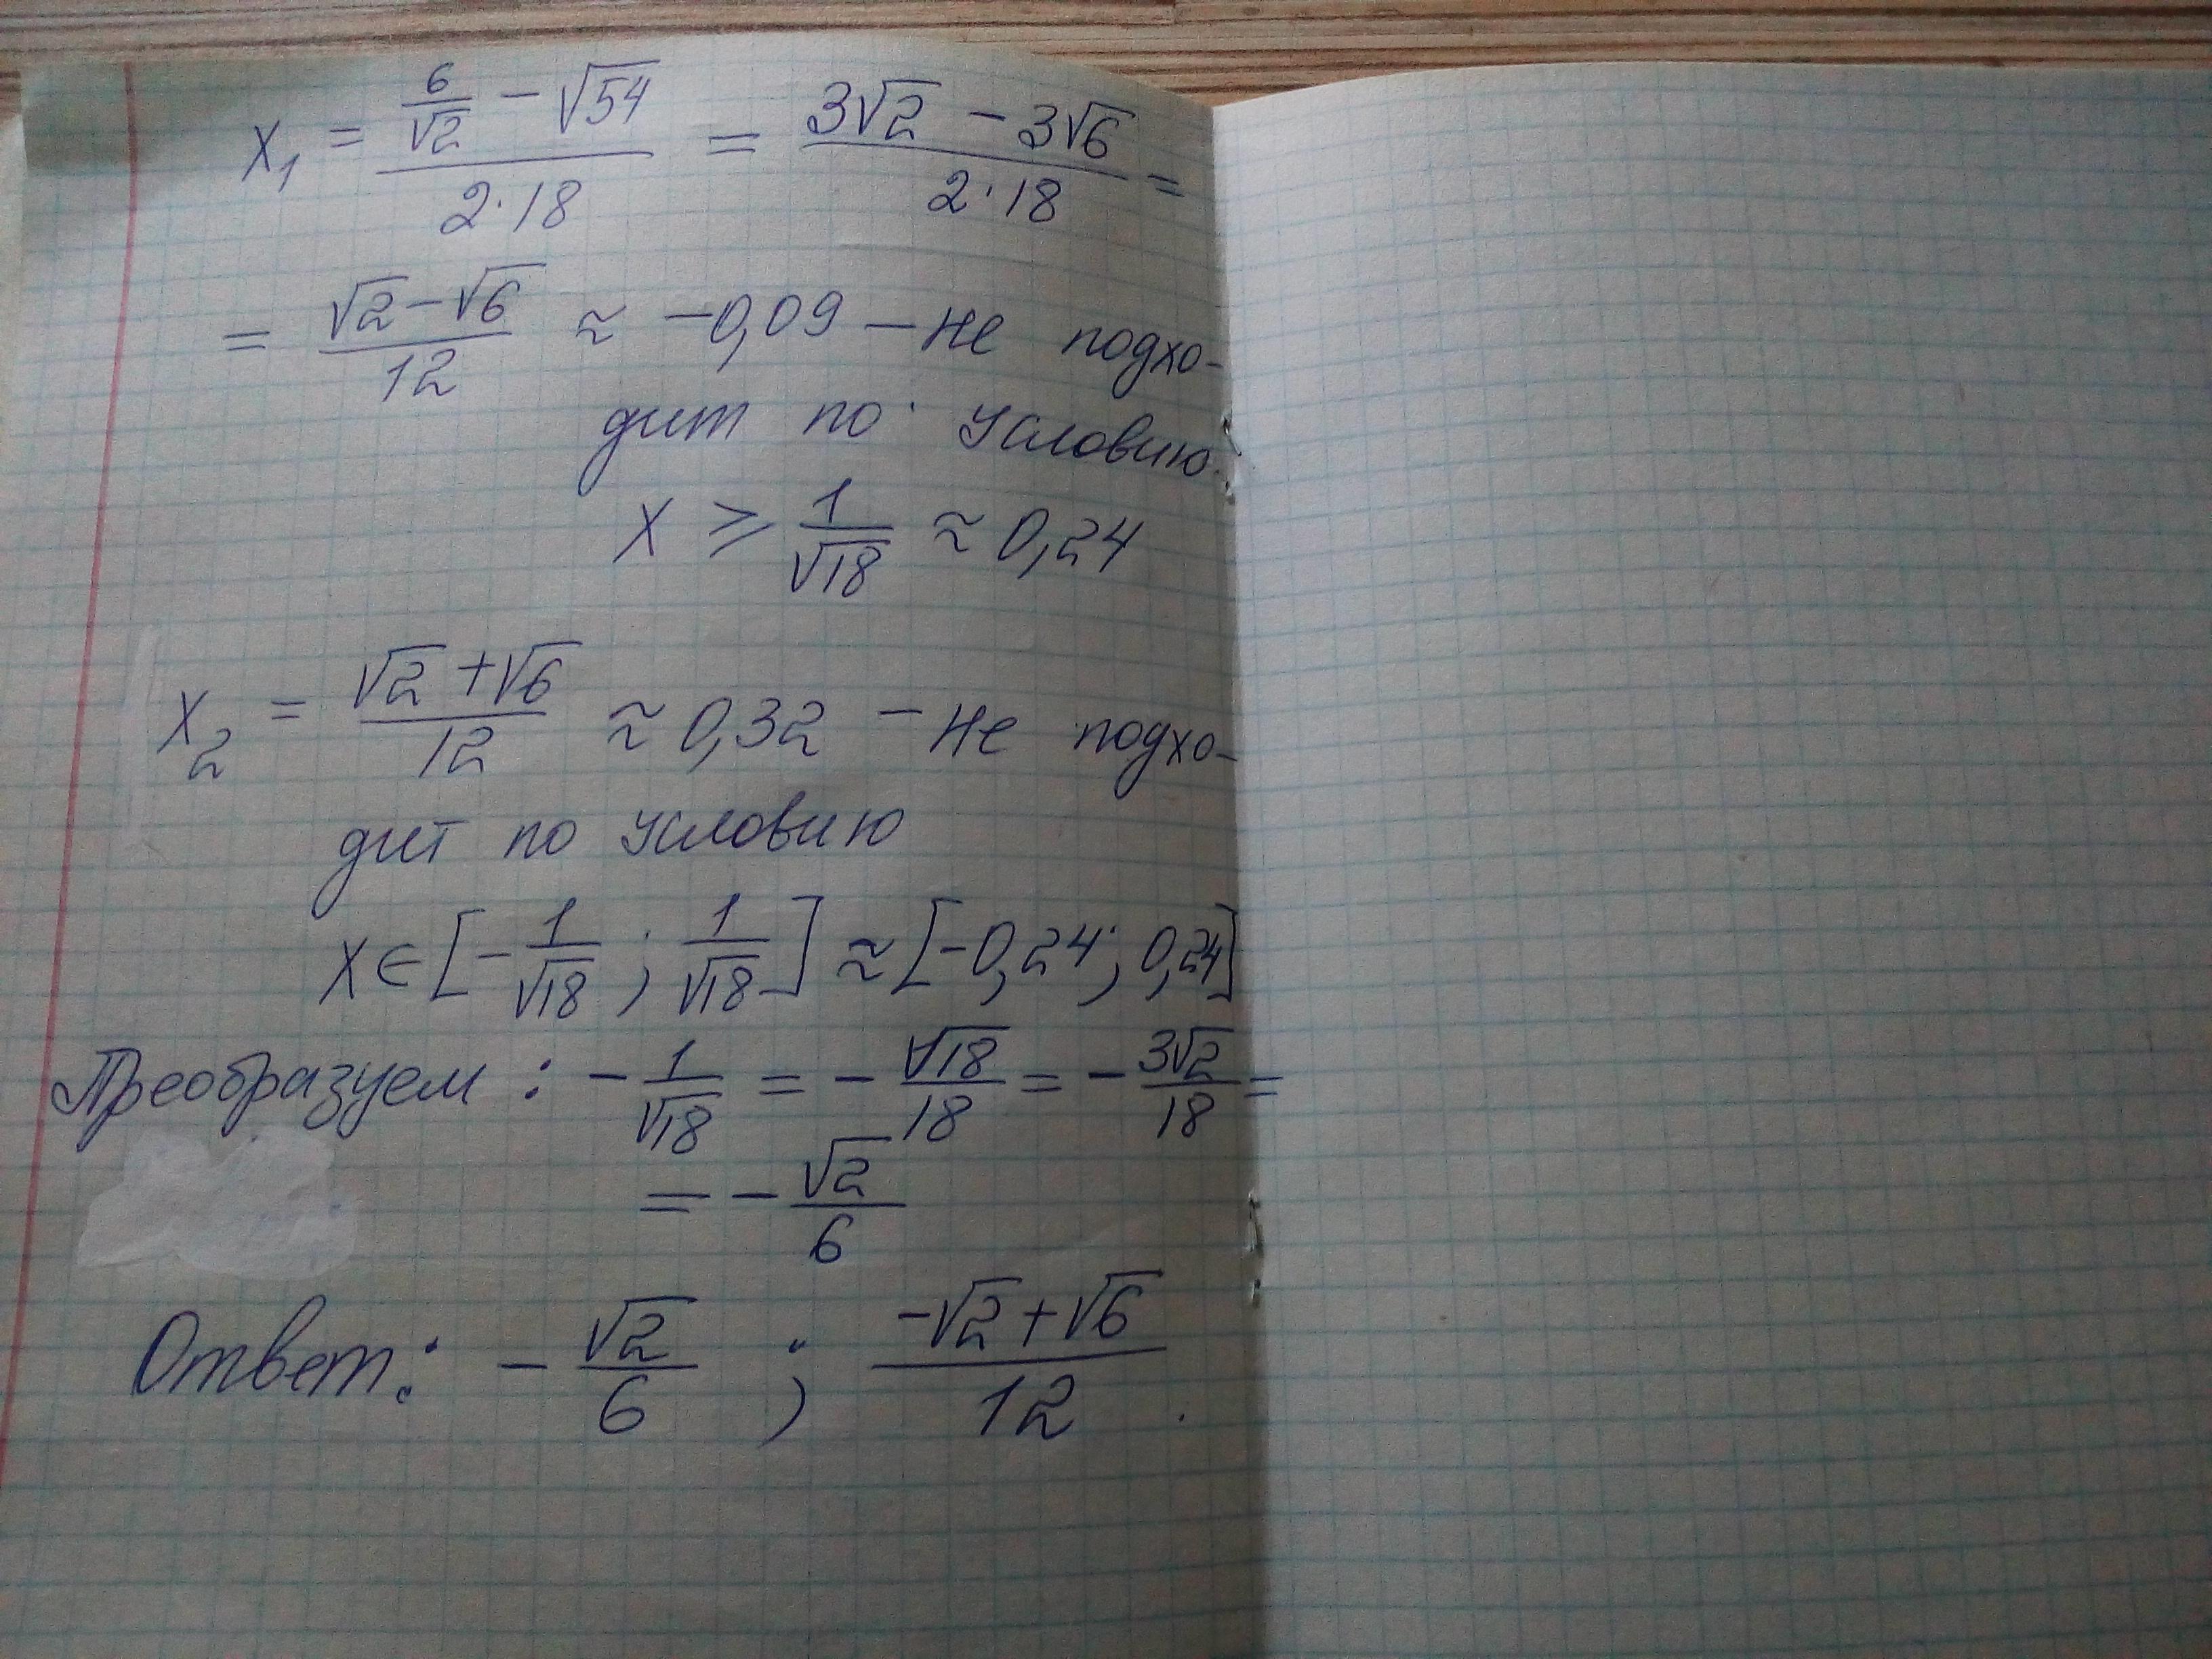 x₁ = (6/√2 − √54)/(2·18) = (3√2 − 3√6)/(2·18) =
= (√2−√6)/12 ≈ −0,09 − не подхо-
дит по условию.
x ≥ 1/√18 ≈ 0,24
x₂ = (√2+√6)/12 ≈ 0,32 − не подхо-
дит по условию
x∈[−1/√18 ; 1/√18] ≈ [−0,24 ; 0,24]
Преобразуем : −1/√18 = −√18/18 = −3√2/18 =
= −√2/6
Ответ: −√2/6 ; (−√2+√6)/12 .